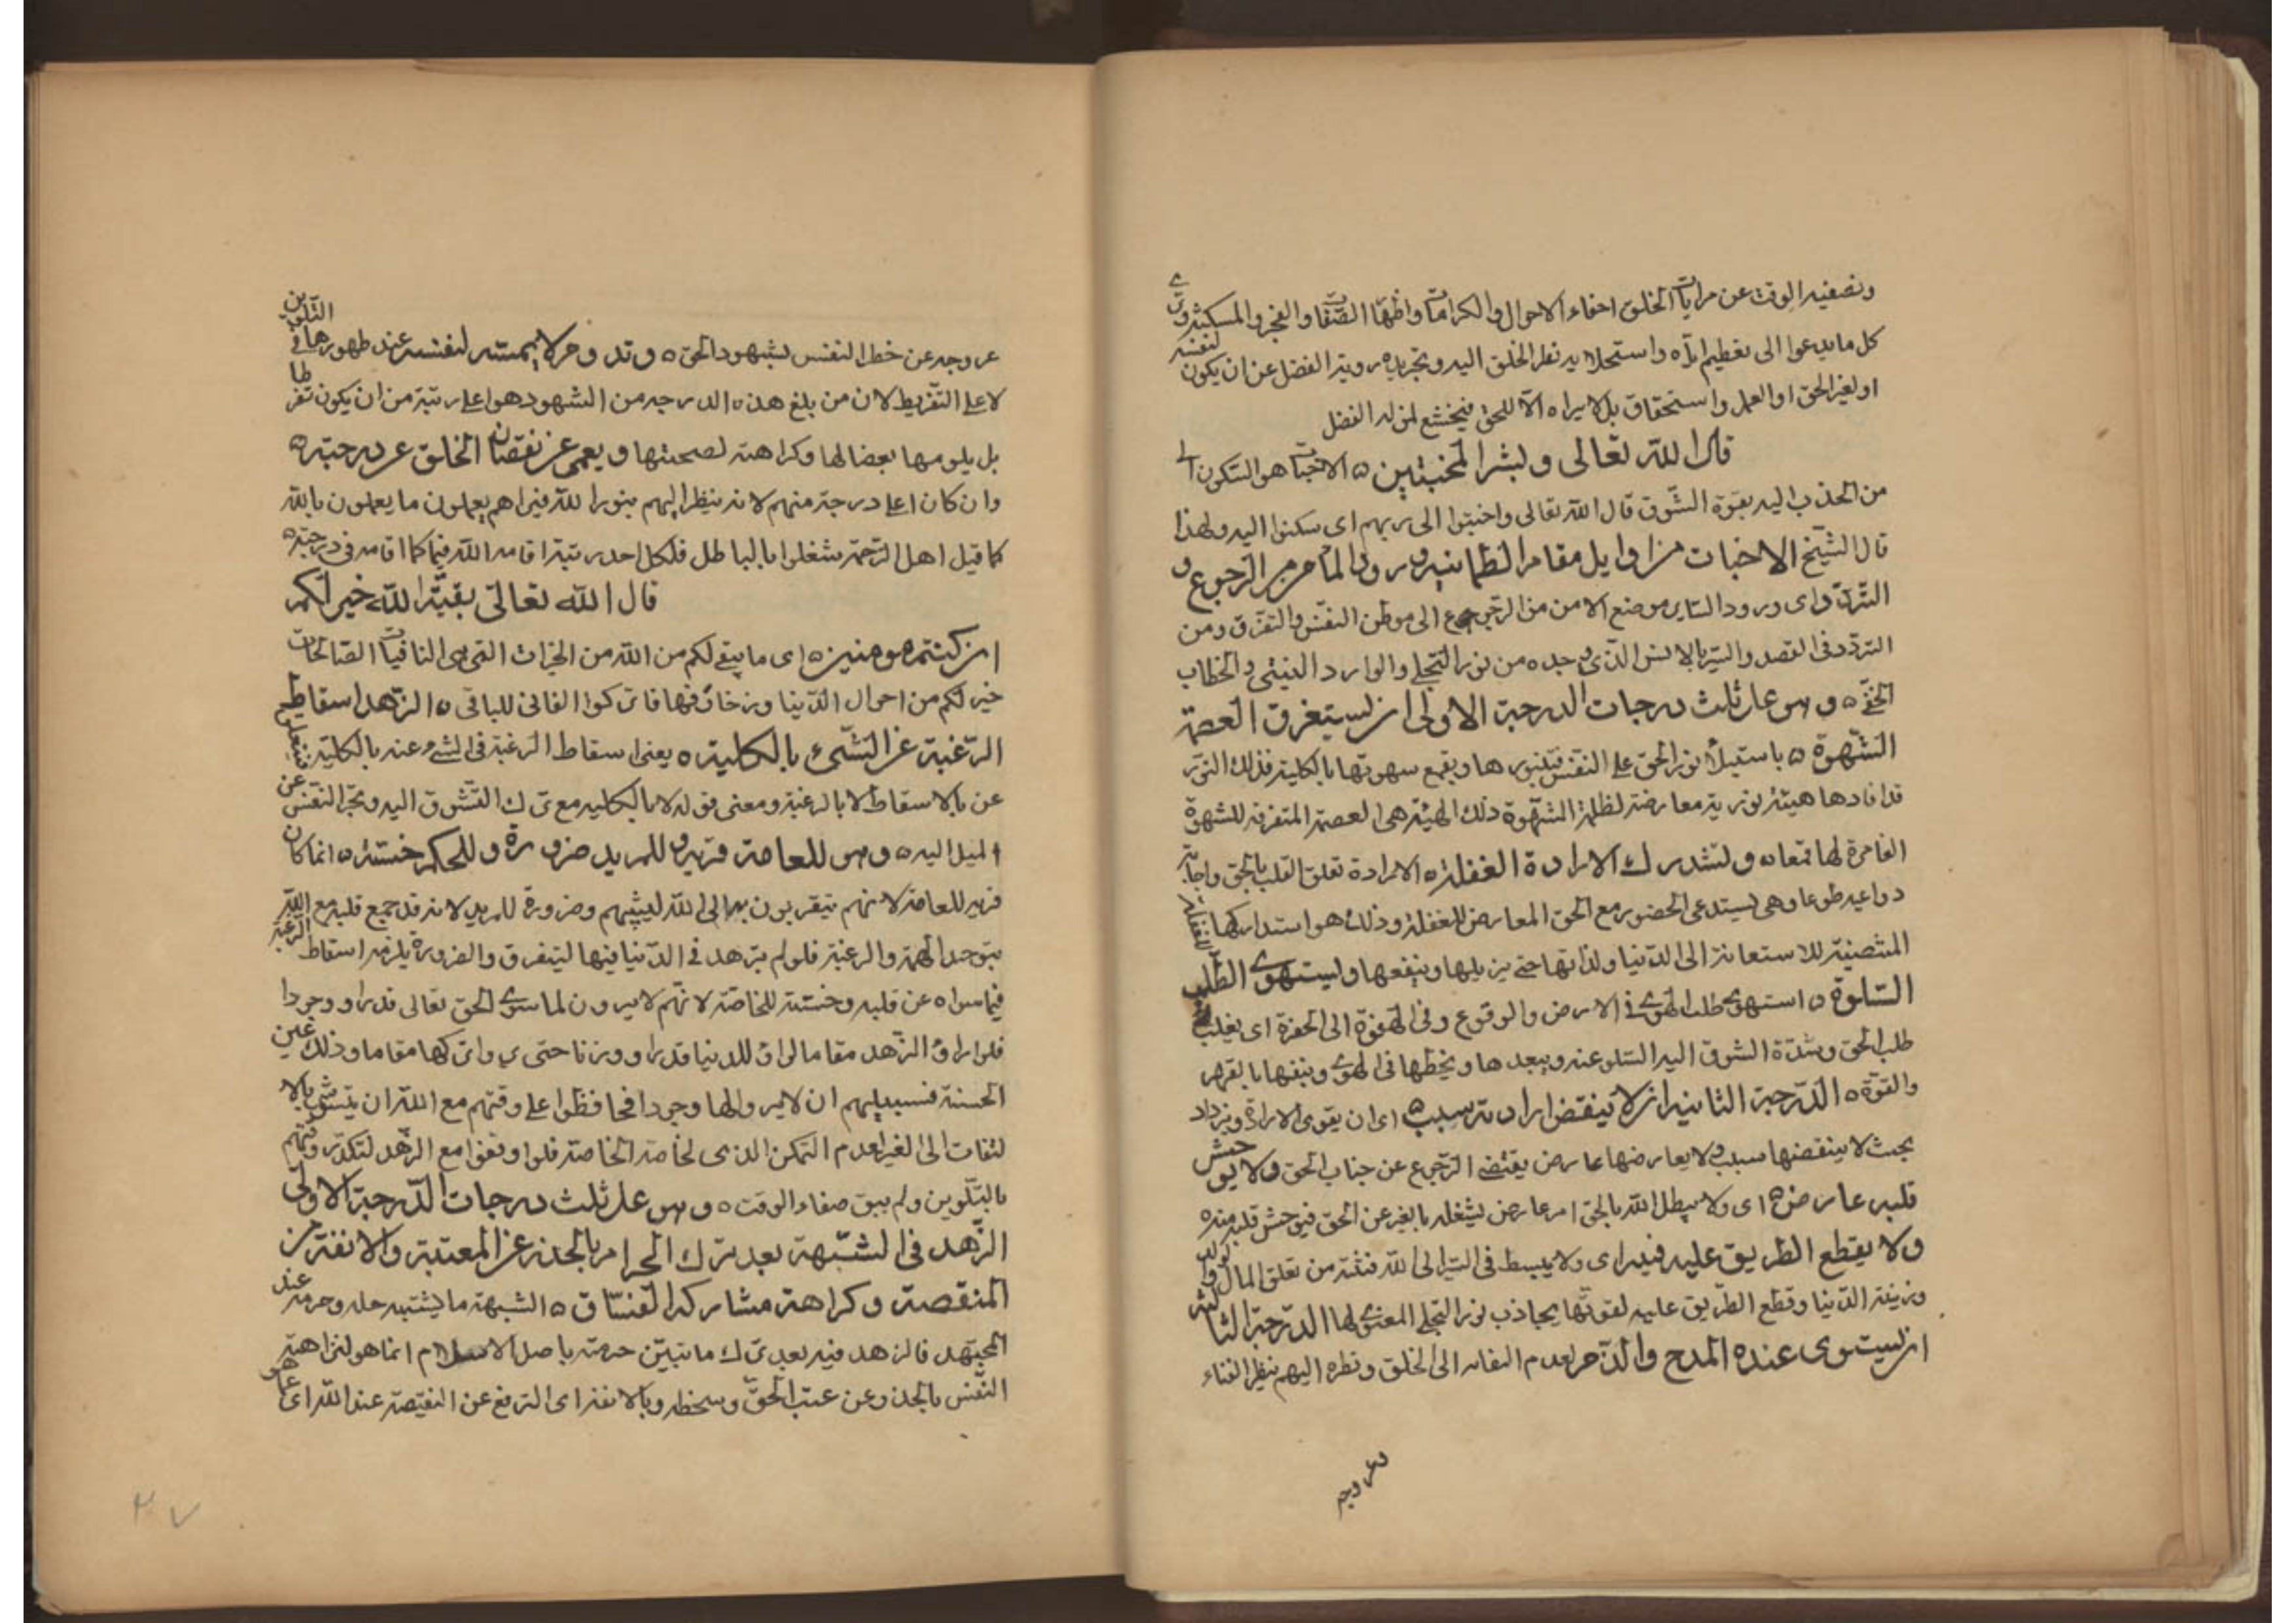 وتصفيه الوقت عن مرايات الخلق اخفاء الاحوال والكرامات واظهار الصفات والفجر والمسكنة وترى
كل ما يدعوا الى تعظيم له واستحلا به نظر الخلق اليه وتجريده روية الفضل عن ان يكون لنفسه
او لغير الحق او العمل واستحقاق بل لا يراه الا للحق فيخشع لمن له الفضل
قال الله تعالى وبشر المخبتين ه الاخبات هو السكون الى
من انجذب اليه بقوة الشوق قال الله تعالى واخبتوا الى ربهم اى سكنوا اليه ولهذا
قال الشيخ الاخبات من اوايل مقام الطمانينه ورود المأمن من الرجوع و
التردد اى ورود الساير موضع الامن من الرجوع الى موطن النفس والتفرق ومن
التردد فى القصد والسير بالانس الذى وجده من نور التجلى والوارد الغيبى والخطاب
الخفى ه وهو على ثلث درجات الدرجة الاولى ان يستغرق العصمة
الشهوة ه باستيلا نور الحق على النفس فتنور ها ويقمع شهوتها بالكلية فذلك النور
قد افادها هيئة نورية معارضة لظلمة الشهوة ذلك الهيئة هى العصمة المتغرقة للشهوة
القاهرة لها قمعا ه وتستدرك الارادة الغفلة ه الارادة تعلق القلب بالحق واجابة
دواعيه طوعا وهى يستدعى الحضور مع الحق المعارض للغفلة وذلك هو استدراكها للغفلة
المتصنية للاستعانة الى الدنيا ولذاتها حتى يزيلها وينفعها ويستهوى الطلب
السلوة ه استهوى طلب الهوى فى الارض والوقوع وفى الهفوة الى الحفرة اى يغلب
طلب الحق وشدة الشوق اليه السلو عنه ويبعد ها ويحطها فى الهوى وينفيها بالقهر
والقوة ه الدرجة الثانية ان لا ينقض ارادته سبب ه اى ان يقوى الارادة ويزداد
بحيث لا ينقضها سبب ولا يعارضها عارض يقتضى الرجوع عن جناب الحق ولا يوحش
قلبه عارض ه اى ولا يبطل الله بالحق امر عارض يشغله بالغير عن الحق فيوحش قلبه منه
ولا يقطع الطريق عليه فتنة اى ولا يبسط فى السير الى الله فتنة من تعلق المال والولد
وزينة الدنيا وقطع الطريق عليه لقوتها يجاذب نور التجلى المعنى لها الدرجة الثالثة
ان يستوى عنده المدح والذم لعدم التفاته الى الخلق ونظره اليهم بنظر الفناء
وعروجه
عروجه عن خط النفس بشهود الحق ه وتدوم لايمته لنفسه عند ظهورها فى التلوين
لا على التفريط لان من بلغ هذه الدرجه من الشهود هو اعلى رتبة من ان يكون تفرطا
بل يلومها بغضا لها وكراهة لصحبتها ويعمى عن نقصان الخلق عن درجته ه
وان كان اعلى درجة منهم لانه ينظر اليهم بنور الله فيراهم يعملون ما يعملون بالله
كما قيل اهل الرحمة شغلوا بالباطل فلكل احد رتبة اقامه الله فيها كما اقامه فى درجته ه
قال الله تعالى بقية الله خير لكم
ان كنتم مومنين ه اى ما يبقى لكم من الله من الخيرات التى هى الباقيات الصالحات
خير لكم من احوال الدنيا وزخارفها فاتركوا الفانى للباقى ه الزهد اسقاط
الرغبة عن الشىء بالكلية ه يعنى اسقاط الرغبة فى الشى وعنه بالكلية
عن بالاسقاط لا بالرغبة ومعنى قوله لا بالكليه مع ترك التشوق اليه وتجر النفس عن
الميل اليه ه وهو للعامة قربة وللمريد ضرورة وللحكم خسة ه انما كان
قربة للعامة لانهم يتقربون بها الى الله ليثيبهم وضرورة للمريد لانه قد جمع قلبه مع الله
بتوحد الهمة والرغبة فلو لم يزهد فى الدنيا فيها ليتفرق والضرورة يلزمه اسقاط الرغبة
فيما سواه عن قلبه وخسة للخاصة لانهم لا يرون لما سوى الحق تعالى قدرا ووجودا
فلو راوا الزهد مقاما لراوا للدنيا قدرا ووزنا حتى يروا تركها مقاما وذلك عين
الخسة فسبيلهم ان لا يروا لها وجودا فحافظوا على وقتهم مع الله ان يتشوش بالا
لتفات الى الغير لعدم التمكن الذى لخاصة الخاصة فلو وقفوا مع الزهد لتكدر وقتهم
بالتلوين ولم يبق صفاء الوقت ه وهو على ثلث درجات الدرجة الاولى
الزهد فى الشبهة بعد ترك الحرام بالحذر عن المعتبة والانفة من
المنقصة وكراهة مشاركة الفساق ه الشبهة ما يشتبه حله وحرمته عند
المجتهد فالزهد فيه بعد ترك ما تبين حرمته باصل الاسلام انما هو لنزاهة
النفس بالحذر وعن عتب الحق وسخطه وبالانفة اى الترفع عن النقيصة عند الله اى
٣٧